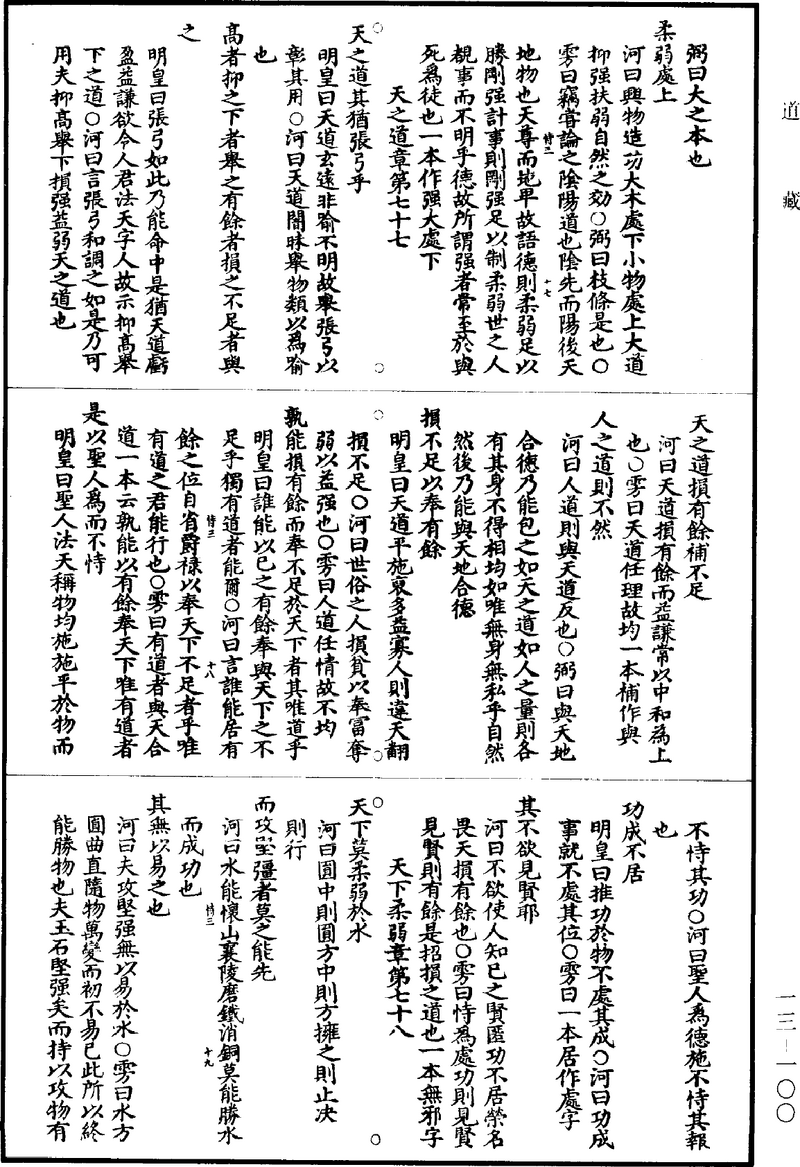 道藏
弼曰大之本也
柔弱處上
河曰興物造功大木處下小物處上大道
抑强扶弱自然之効○弼曰枝條是也○
雱曰竊甞論之陰陽道也陰先而陽後天
恃三
十七
地物也天尊而地卑故語德則柔弱足以
勝剛强計事則剛强足以制柔弱世之人
覩事而不明乎德故所謂强者常至於與
死爲徒也一本作强大處下
天之道章第七十七
天之道其猶張弓乎
明皇曰天道玄遠非喻不明故舉張弓以
彰其用○河曰天道闇昧舉物類以爲喻
也
高者抑之下者舉之有餘者損之不足者與
之
明皇曰張弓如此乃能命中是猶天道虧
盈益謙欲令人君法天字人故示抑高舉
下之道○河曰言張弓和調之如是乃可
用夫抑高舉下損强益弱天之道也
天之道損有餘補不足
河曰天道損有餘而益謙常以中和爲上
也○雱曰天道任理故均一本補作與
人之道則不然
河曰人道則與天道反也○弼曰與天地
合德乃能包之如天之道如人之量則各
有其身不得相均如唯無身無私乎自然
然後乃能與天地合德
損不足以奉有餘
明皇曰天道平施裒多益寡人則違天翻
損不足○河曰世俗之人損貧以奉富奪
弱以益强也○雱曰人道任情故不均
孰能損有餘而奉不足於天下者其唯道乎
明皇曰誰能以己之有餘奉與天下之不
足乎獨有道者能爾○河曰言誰能居有
恃三
十八
餘之位自省爵禄以奉天下不足者乎唯
有道之君能行也○雱曰有道者與天合
道一本云孰能以有餘奉天下唯有道者
是以聖人爲而不恃
明皇曰聖人法天稱物均施施平於物而
不恃其功○河曰聖人爲德施不恃其報
也
功成不居
明皇曰推功於物不處其成○河曰功成
事就不處其位○雱曰一本居作處字
其不欲見賢耶
河曰不欲使人知己之賢匿功不居榮名
畏天損有餘也○雱曰恃爲處功則見賢
見賢則有餘是招損之道也一本無邪字
天下柔弱章第七十八
天下莫柔弱於水
河曰圓中則圓方中則方擁之則止决
則行
而攻堅彊者莫之能先
河曰水能懷山襄陵磨鐵消銅莫能勝水
恃三
十九
而成功也
其無以易之也
河曰夫攻堅强無以易於水○雱曰水方
圓曲直隨物萬變而初不易己此所以終
能勝物也夫玉石堅强矣而持以攻物有
一三─一〇〇